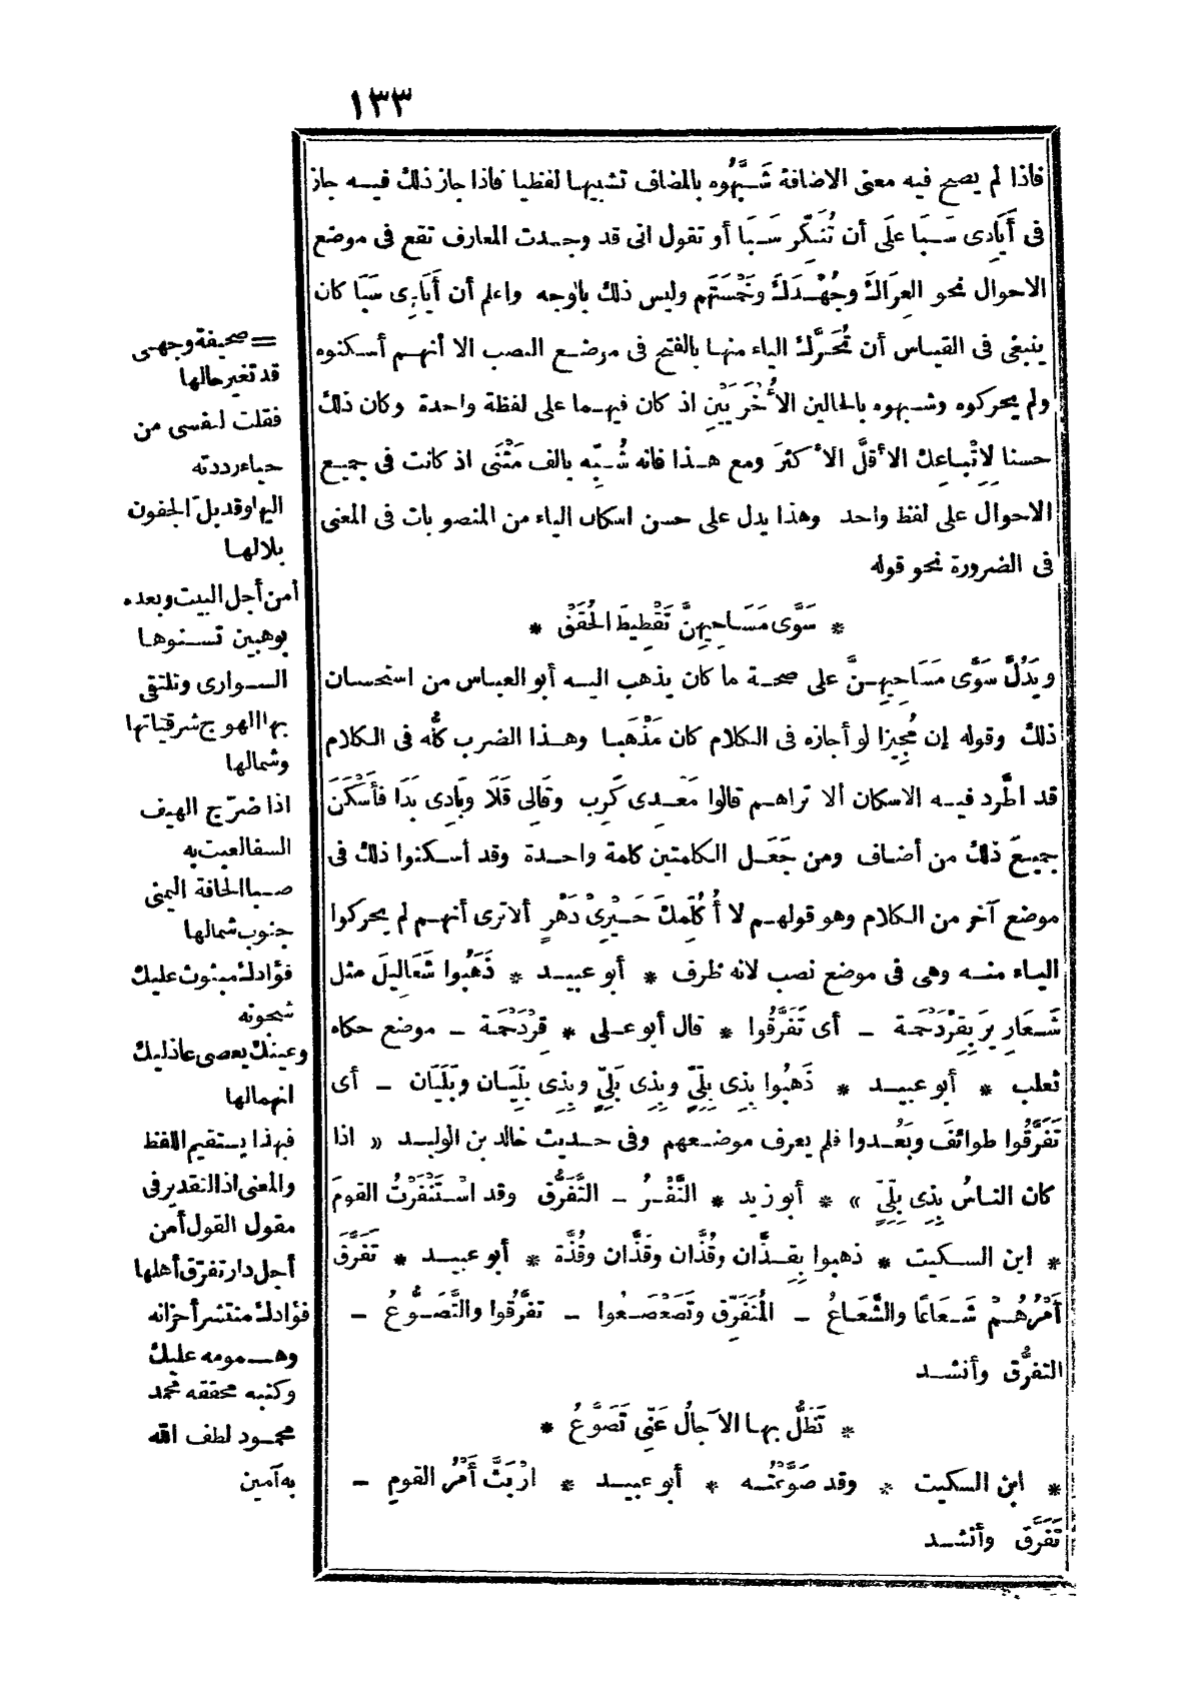 ١٣٣
فاذا لم يصح فيه معنى الاضافة شَبَّهُوه بالمضاف تشبيها لفظيا فاذا جاز ذلك فيه جاز
فى أَيَادِى سَبَا علَى أن تُنَكِّر سَبَا أو تقول انى قد وجدت المعارف تقع فى موضع
الاحوال نحو العِرَاكَ وجُهْدَكَ وخَمْسَتَهم وليس ذلك بالوجه واعلم أن أَيَادِى سَبَا كان
ينبغى فى القياس أن تُحَرَّك الياء منها بالفتح فى موضع النصب الا أنهم أسكنوه
ولم يحركوه وشبهوه بالحالين الأُخْرَيَيْنِ اذ كان فيهما على لفظة واحدة وكان ذلك
حسنا لِاتْباعِك الأقلَّ الأكثرَ ومع هذا فانه شُبِّه بالف مَثْنَى اذ كانت فى جميع
الاحوال على لفظ واحد وهذا يدل على حسن اسكان الياء من المنصوبات فى المعنى
فى الضرورة نحو قوله
* سَوَّى مَسَاحِيهِنَّ تَقْطِيطَ الحُقَقْ *
ويَدُلُّ سَوَّى مَسَاحِيهِنَّ على صحة ما كان يذهب اليه أبو العباس من استحسان
ذلك وقوله إن مُجِيزا لو أجازه فى الكلام كان مَذْهَبا وهذا الضرب كُلُّه فى الكلام
قد اطَّرد فيه الاسكان ألا تراهم قالوا مَعْدِى كَرِب وقَالِى قَلَا وبَادِى بَدَا فأَسْكَنَ
جميعَ ذلك من أضاف ومن جَعَل الكلمتين كلمة واحدة وقد أسكنوا ذلك فى
موضع آخر من الكلام وهو قولهم لا أُكَلِّمكَ حَيْرِىْ دَهْرٍ ألا ترى أنهم لم يحركوا
الياء منه وهى فى موضع نصب لانه ظرف * أبو عبيد * ذَهَبُوا شَعَالِيلَ مثل
شَعَارِيرَ بِقِرْدَحْمَة ـ أى تَفَرَّقُوا * قال أبو على * قِرْدَحْمَة ـ موضع حكاه
ثعلب * أبو عبيد * ذَهَبُوا بِذِى بِلِّىٍّ وبِذِى بَلِّىٍّ وبِذِى بِلِّيَان وبَلَيَان ـ أى
تَفَرَّقُوا طوائفَ وبَعُدوا فلم يعرف موضعهم وفى حديث خالد بن الوليد « اذا
كان الناسُ بِذِى بِلِّىٍّ » * أبو زيد * النَّفْرُ ـ التَّفَرُّق وقد اسْتَنْفَرْتُ القومَ
* ابن السكيت * ذهبوا بِقِذَّان وقُذَّان وقَذَّان وقُذَّة * أبو عبيد * تَفَرَّقَ
أَمْرُهُمْ شَعَاعًا والشَّعَاعُ ـ المُتَفَرِّق وتَصَعْصَعُوا ـ تفرَّقُوا والتَّصَوُّعُ ـ
التفرُّق وأنشد
* تَظَلُّ بها الآجالُ عَنِّى تَصَوَّعُ *
* ابن السكيت * وقد صَوَّعْتُه * أبو عبيد * ارْبَثَّ أَمْرُ القومِ ـ
تَفَرَّقَ وأنشد
= صحيفة وجهى
قد تغير حالها
فقلت لنفسى من
حياء رددته
اليها وقد بلّ الجفون
بلالها
أمن أجل البيت وبعده
بوهبين تسنوها
السوارى وتلتقى
بها الهوج شرقياتها
وشمالها
اذا ضرّج الهيف
السفا لعبت به
صبا الحافة اليمنى
جنوب شمالها
فؤادك مبثوث عليك
شجونه
وعينك يعصى عاذليك
انهمالها
فبهذا يستقيم اللفظ
والمعنى اذ التقدير فى
مقول القول أمن
أجل دار تفرّق أهلها
فؤادك منتشر أحزانه
وهمومه عليك
وكتبه محققه محمد
محمود لطف الله
به آمين